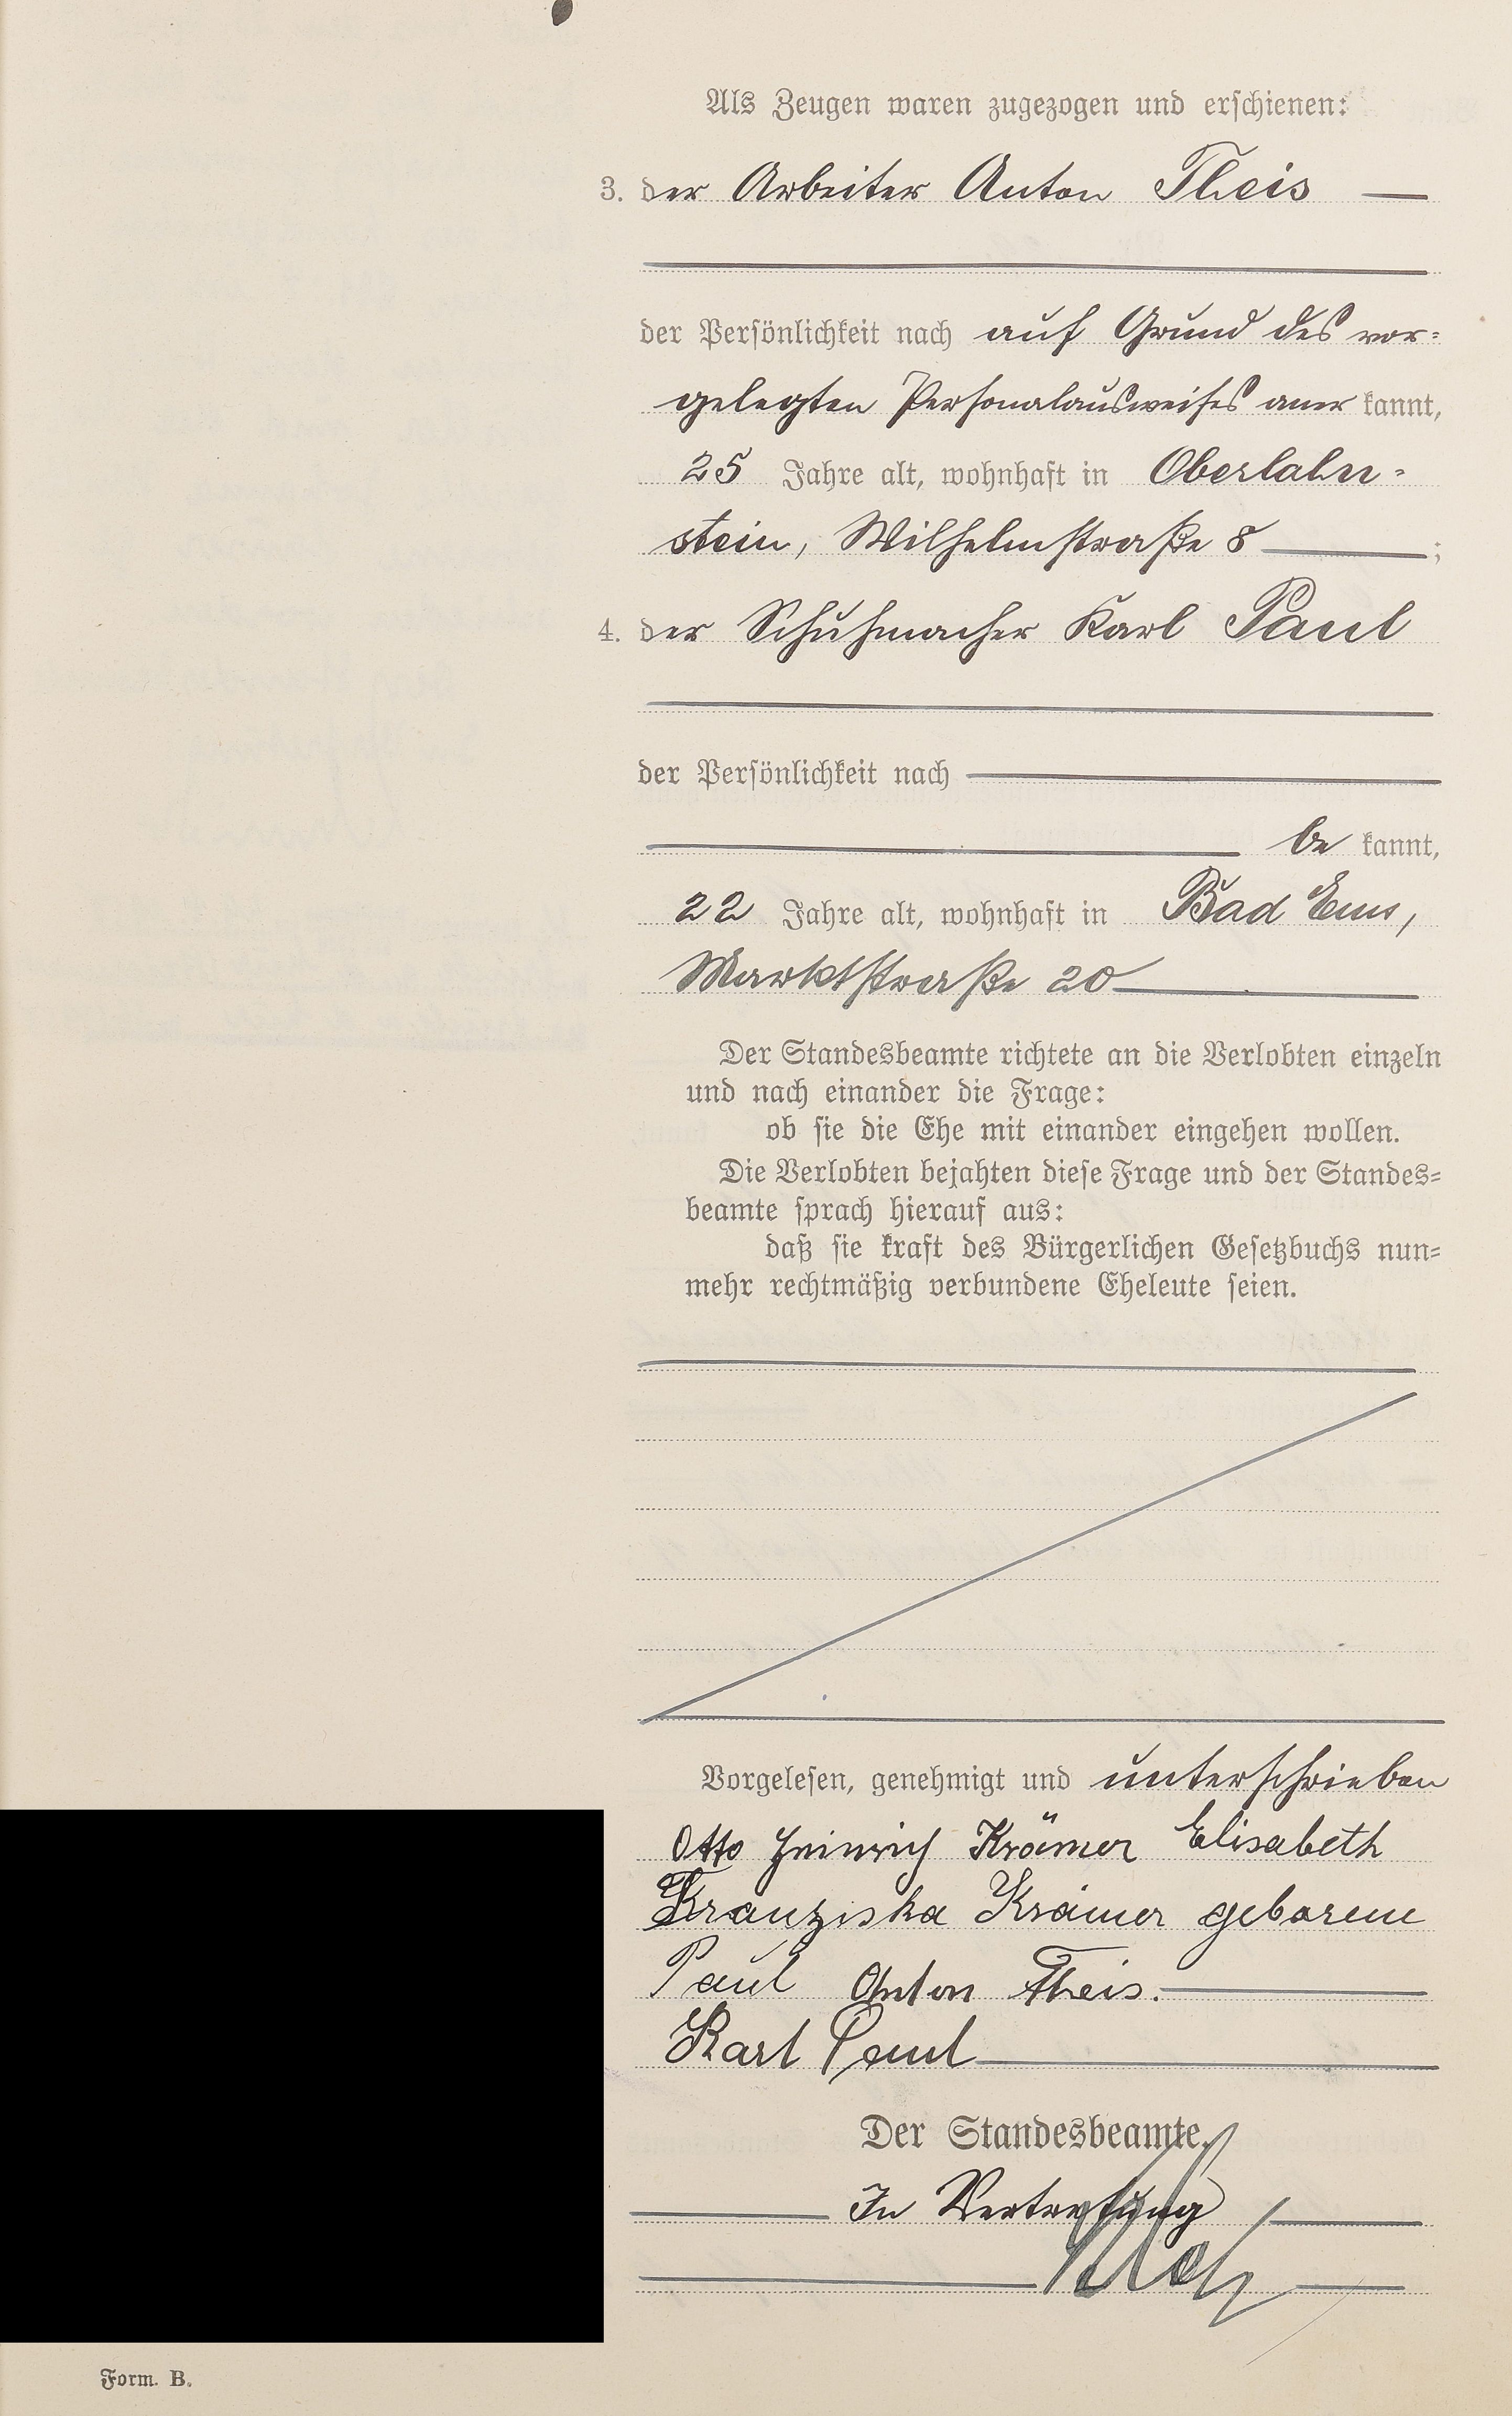 Als Zeugen waren zugezogen und erschienen:
3. der Arbeiter Anton Theis —
der Persönlichkeit nach auf Grund des vor=
gelegten Personalausweises aner kannt,
25 Jahre alt, wohnhaft in Oberlahn=
stein, Wilhelmstraße 8 ;
4. der Schuhmacher Karl Paul
der Persönlichkeit nach
be kannt,
22 Jahre alt, wohnhaft in Bad Ems,
Marktstraße 20
Der Standesbeamte richtete an die Verlobten einzeln
und nach einander die Frage:
ob sie die Ehe mit einander eingehen wollen.
Die Verlobten bejahten diese Frage und der Standes=
beamte sprach hierauf aus:
daß sie kraft des Bürgerlichen Gesetzbuchs nun=
mehr rechtmäßig verbundene Eheleute seien.
Vorgelesen, genehmigt und unterschrieben
Otto Heinrich Krämer Elisabeth
Franziska Krämer geborene
Paul Anton Theis.
Karl Paul
Der Standesbeamte.
In Vertretung
Form. B.